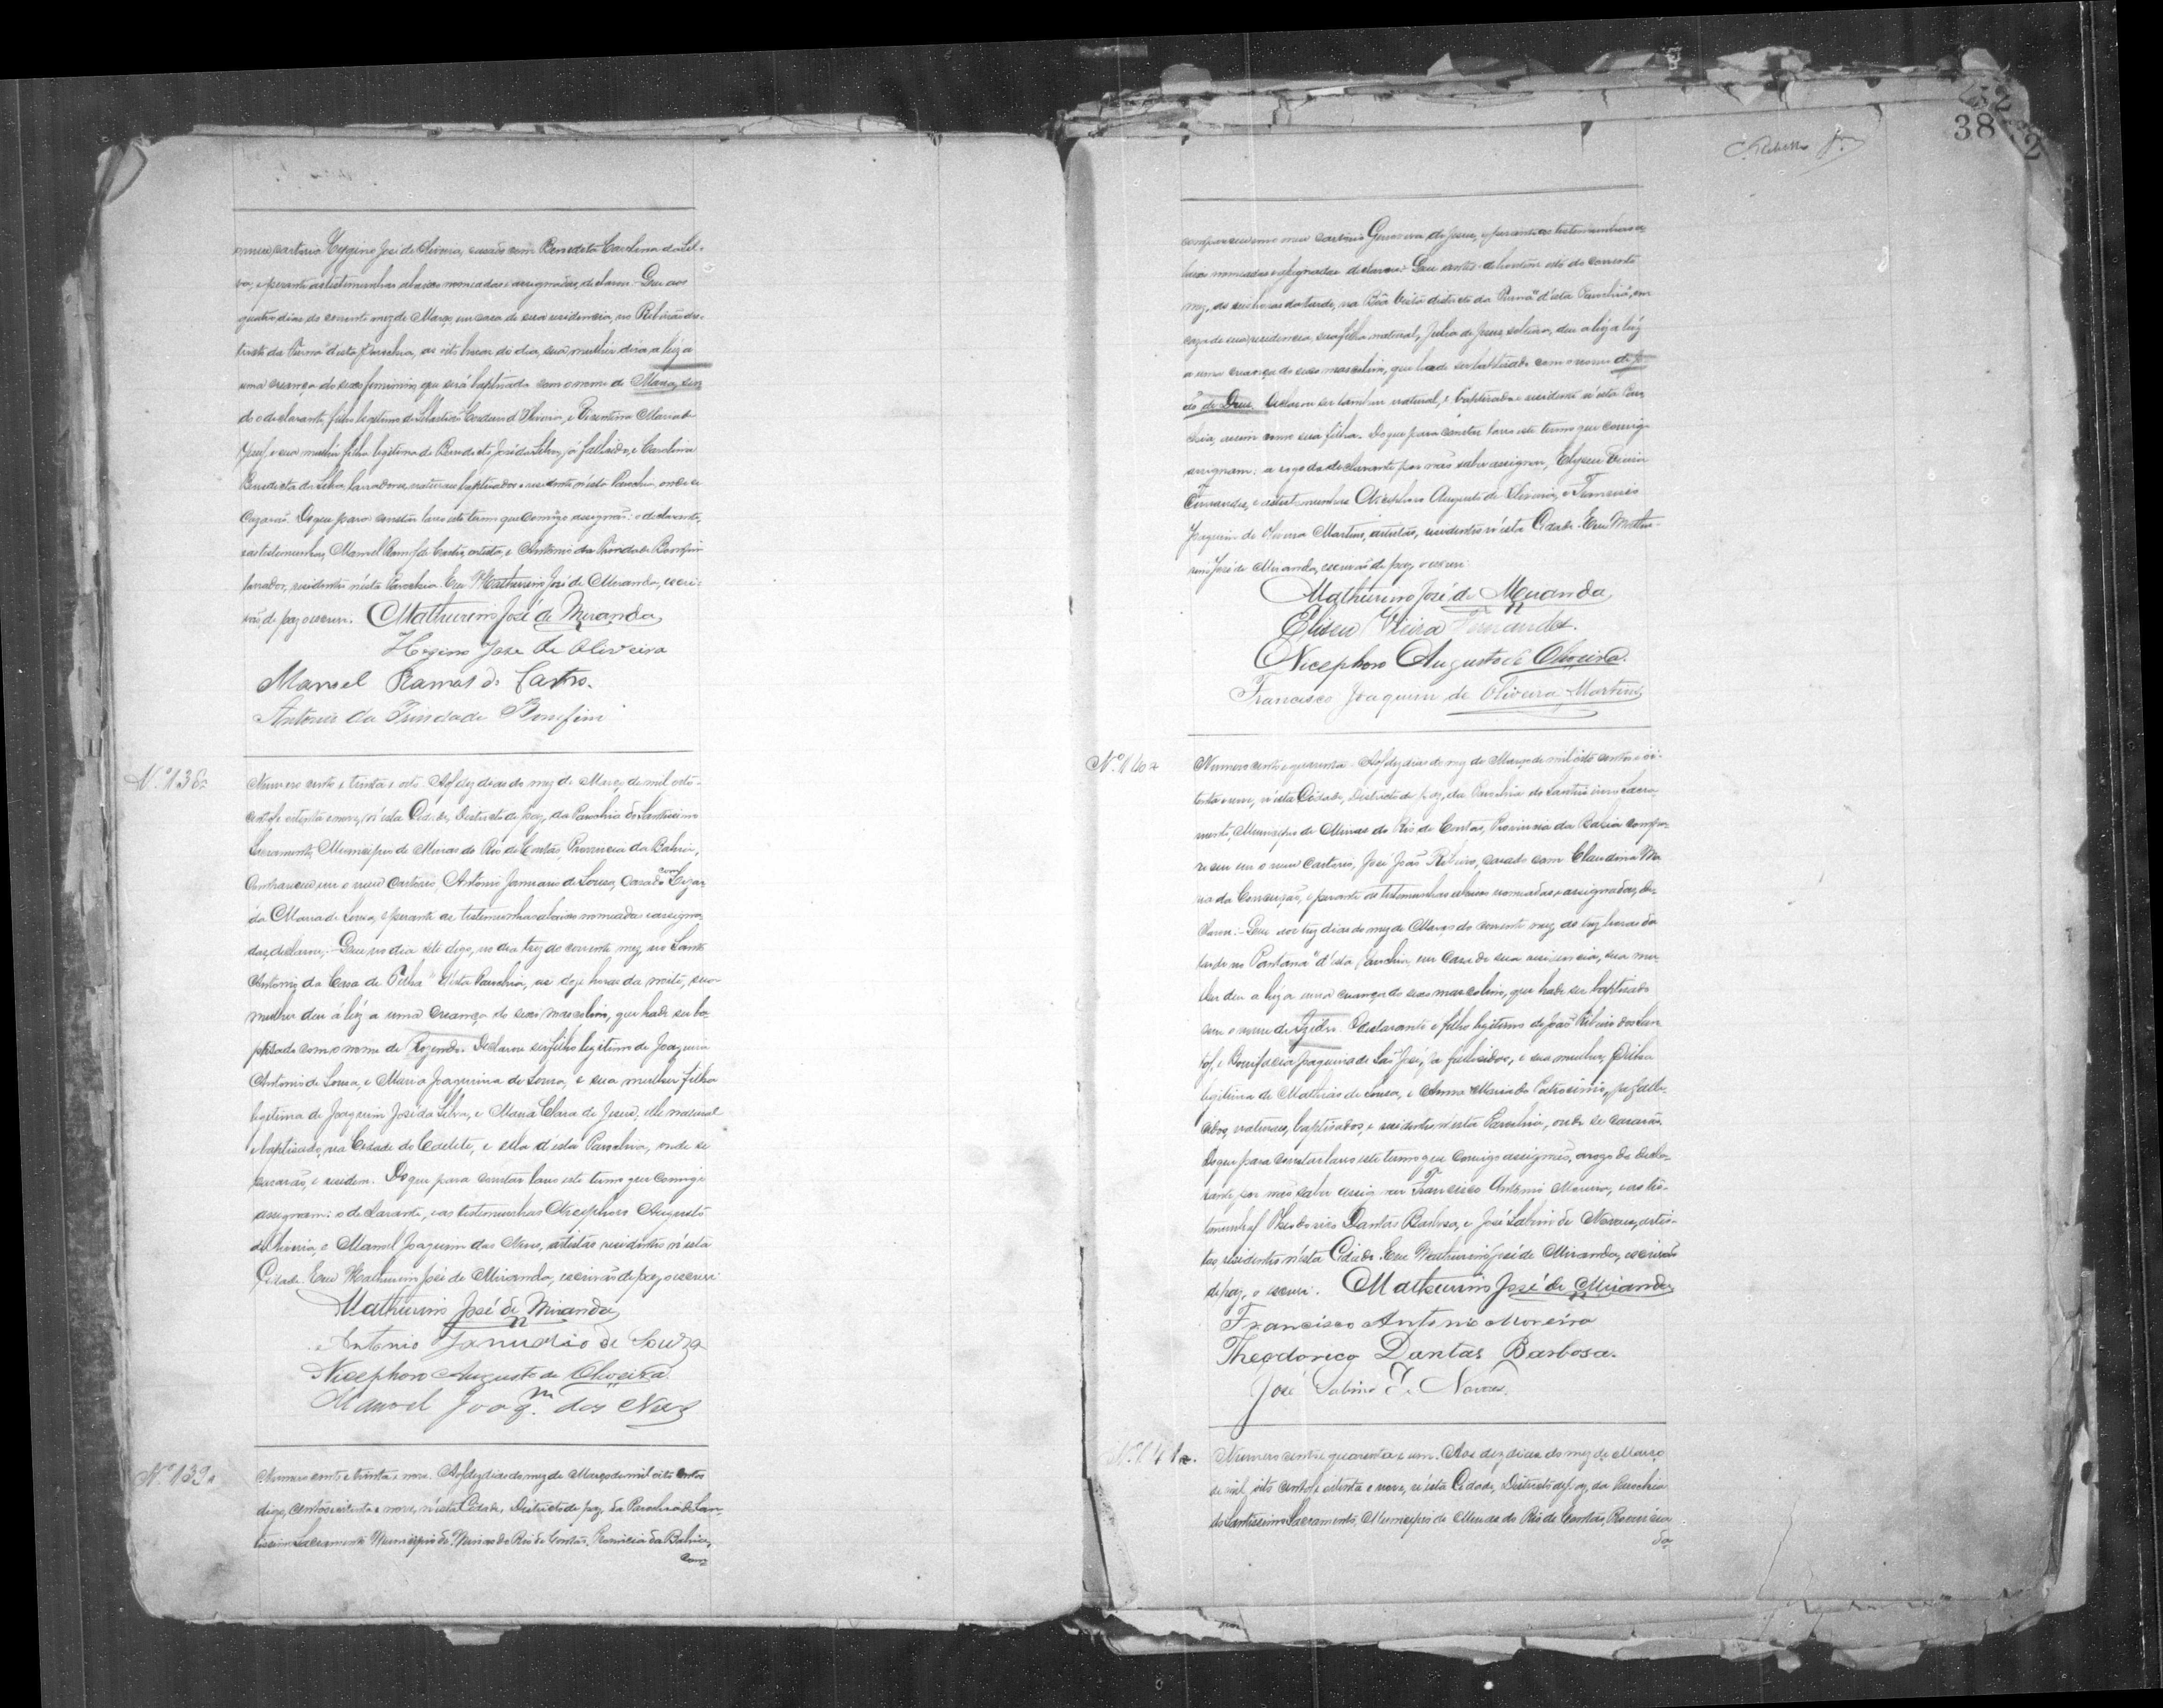 o meu cartorio Hygino José de Oliveira, casado com Benedicta Carolina da Sil-
va, e perante as testemunhas abaixo nomeadas e assignadas, declarou: Que aos
quatro dias do corrente mez de Março, em casa de sua residencia, no Ribeirão dis-
tricto da Furna d'esta Parochia, as oito horas do dia, sua mulher dera a luz a
uma creança do sexo feminino, que será baptisada com o nome de Maria, sen
do o declarante filho legitimo de Cordeiro d'Oliveira, e Vicentina Maria de
Jesus, e sua mulher filha legitima de Benedicto José da Silva, já fallecido, e Carolina
Benedicta da Silva, lavradores, naturaes, baptisados e residentes n'esta Parochia, onde se
cazarão. Do que para constar lavro este termo que comigo assignão: o declarante,
e as testemunhas, Manoel Ramos de Castro, artista, e Antonio da Trindade Bomfim
lavrador, residentes n'esta Parochia. Eu Mathurino José de Miranda, escri-
vão de paz o escrevi. Mathurino José de Miranda
Hogino Jose de Oliveira
Manoel Ramos de Castro.
Antonio da Trindade Bomfim
Nº 138
Numero cento e trinta e oito. Aos dez dias do mez de Março de mil oito-
centos e oitenta e nove, n'esta Cidade, Districto de paz, da Parochia do Santissimo
Sacramento, Municipio de Minas do Rio de Contas, Provincia da Bahia,
Compareceu em o meu Cartorio, Antonio Januario de Sousa, Casado com
da Maria de Sousa, e perante as testemunhas abaixo nomeadas e assigna-
das, declarou: Que no dia sete digo, no dia trez do corrente mez, no Santo
Antonio da Casa de Telha d'esta Parochia, as doze horas da noite, sua
mulher deu á luz a uma creança do sexo masculino, que hade ser ba-
ptisado com o nome de Rozendo. Declarou ser filho legitimo de Joaquim
Antonio de Sousa, e Maria Joaquina de Sousa, e sua mulher filha
legitima de Joaquim José da Silva, e Maria Clara de Jesus, elle natural
e baptisado, na Cidade de Caetité, e ella d'esta Parochia, onde se
casarão, e residem. Do que para constar lavro este termo que comigo
assignam: o declarante, e as testemunhas Nicephoro Augusto
de Oliveira, e Manoel Joaquim das Neves, artistas residentes n'esta
Cidade. Eu Mathurino José de Miranda, escrivão de paz, o escrevi
Mathurino José de Miranda
Antonio Januario de Souza
Nicephoro Augusto de Oliveira.
Manoel Joaq.m das Neves
Nº 139
Numero cento e trinta e nove. Aos dez dias do mez de Março de mil oito centos
digo, centos e oitenta e nove, n'esta Cidade, Districto de paz, da Parochia do San-
tissimo Sacramento Municipio de Minas do Rio de Contas, Provincia da Bahia,
com
38
2
compareceu em o meu Cartorio Genoveva de Jesus, e perante as testemunhas a-
baixo nomeadas e assignadas declarou: Que antes de hontem oito do corrente
mez, as seis horas da tarde, na Bôa Vista districto da Furna d'esta Parochia, em
caza de sua residencia, sua filha natural, Julia de Jesus, solteira, deu a luz
a uma creança do sexo masculino, que hade ser baptisado com o nome de Jo-
ão de Deus. Declarou ser tambem natural, e baptisada e residente n'esta Paro-
chia, assim como sua filha. Do que para constar lavro este termo que comigo
assignam: a rogo da declarante por não saber assignar, Elyseu Vieira
Fernandes, e as testemunhas Nicephoro Augusto de Oliveira, e Francisco
Joaquim de Oliveira Martins, artistas, residentes n'esta Cidade. Eu Mathu-
rino José de Miranda, escrivão de paz, o escrevi
Mathurino José de Miranda
Eliseu Vieira Fernandes.
Nicephoro Augusto de Oliveira.
Francisco Joaquim de Oliveira Martins
Nº 140
Numero cento e quarenta. Aos dez dias do mez de Março de mil oito centos e oi-
tenta e nove, n'esta Cidade, Districto de paz, da Parochia do Santissimo Sacra-
mento, Municipio de Minas do Rio de Contas, Provincia da Bahia compa-
receu em o meu Cartorio, José João Ribeiro, casado com Claudina Ma-
ria da Conceição, e perante as testemunhas abaixo nomeadas e assignadas, de-
clarou: Que aos trez dias do mez de Março do corrente mez, as trez horas da
tarde no Pantano d'esta Parochia, em casa de sua residencia, sua mu-
lher deu a luz a uma creança do sexo masculino, que hade ser baptisado
com o nome de Izidro. O declarante é filho legitimo de João Ribeiro dos San-
tos, e Bonifacia Joaquina de São José, já fallecidos, e sua mulher, filha
legitima de Mathias de Sousa, e Anna Maria do Patrocinio, já falle-
cidos, naturaes, baptisados, e residentes n'esta Parochia, onde se casarão.
Do que para constar lavro este termo que comigo assignão, a rogo do decla-
rante por não saber assignar Francisco Antonio Moreira, e as tes-
temunhas Theodorico Dantas Barbosa, e José Sabino de Novaes, artis-
tas, residentes n'esta Cidade. Eu Mathurino José de Miranda, escrivão
de paz, o escrevi. Mathurino José de Miranda
Francisco Antonio Moreira
Theodorico Dantas Barbosa.
José Sabino de Novaes.
Nº 141
Numero cento e quarenta e um. Aos dez dias do mez de Março
de mil oito centos e oitenta e nove, n'esta Cidade, Districto de paz, da Parochia
do Santissimo Sacramento, Municipio de Minas do Rio de Contas, Provincia
da